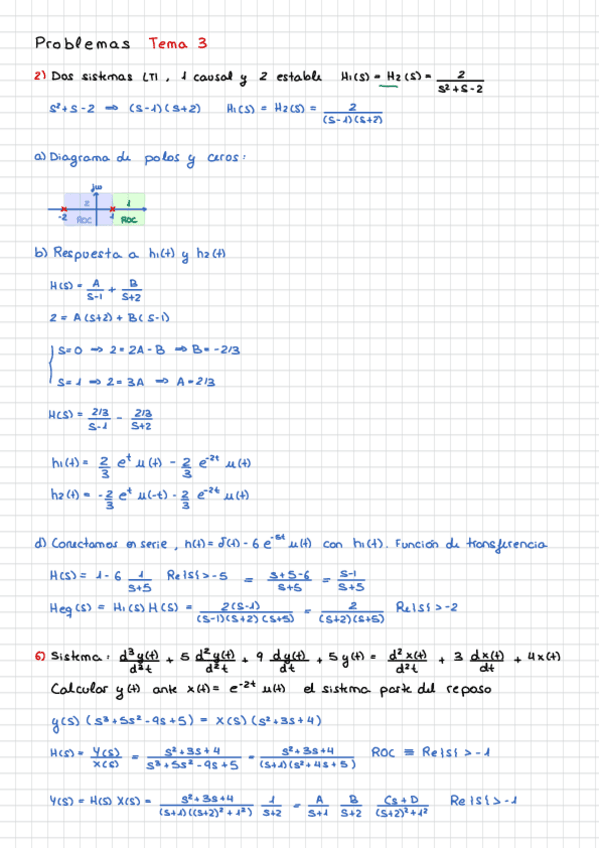 Problemas Tema 3
2) Dos sistemas LTI, 1 causal y 2 estable H₁(s) = H₂(s) = 2/(s²+s-2)
s²+s-2 ⇒ (s-1)(s+2) H₁(s) = H₂(s) = 2/((s-1)(s+2))
a) Diagrama de polos y ceros:
jω
2 1
-2 ROC 1 ROC
b) Respuesta a h₁(t) y h₂(t)
H(s) = A/(s-1) + B/(s+2)
2 = A(s+2) + B(s-1)
s=0 ⇒ 2=2A-B ⇒ B=-2/3
s=1 ⇒ 2=3A ⇒ A=2/3
H(s) = (2/3)/(s-1) - (2/3)/(s+2)
h₁(t) = 2/3 e^t u(t) - 2/3 e^-2t u(t)
h₂(t) = -2/3 e^t u(-t) - 2/3 e^-2t u(t)
d) Conectamos en serie, h(t) = δ(t) - 6 e^-5t u(t) con h₁(t). Función de transferencia
H(s) = 1-6 1/(s+5) Re{s}>-5 = (s+5-6)/(s+5) = (s-1)/(s+5)
Heq(s) = H₁(s) H(s) = 2(s-1)/((s-1)(s+2)(s+5)) = 2/((s+2)(s+5)) Re{s}>-2
6) Sistema: d³y(t)/d³t + 5 d²y(t)/d²t + 9 dy(t)/dt + 5y(t) = d²x(t)/d²t + 3 dx(t)/dt + 4x(t)
Calcular y(t) ante x(t) = e^-2t u(t) el sistema parte del reposo
y(s) (s³+5s²-9s+5) = x(s) (s²+3s+4)
H(s) = Y(s)/X(s) = (s²+3s+4)/(s³+5s²-9s+5) = (s²+3s+4)/((s+1)(s²+4s+5)) ROC ≡ Re{s}>-1
Y(s) = H(s) X(s) = (s²+3s+4)/((s+1)((s+2)²+1²)) 1/(s+2) = A/(s+1) B/(s+2) (Cs+D)/((s+2)²+1²) Re{s}>-1